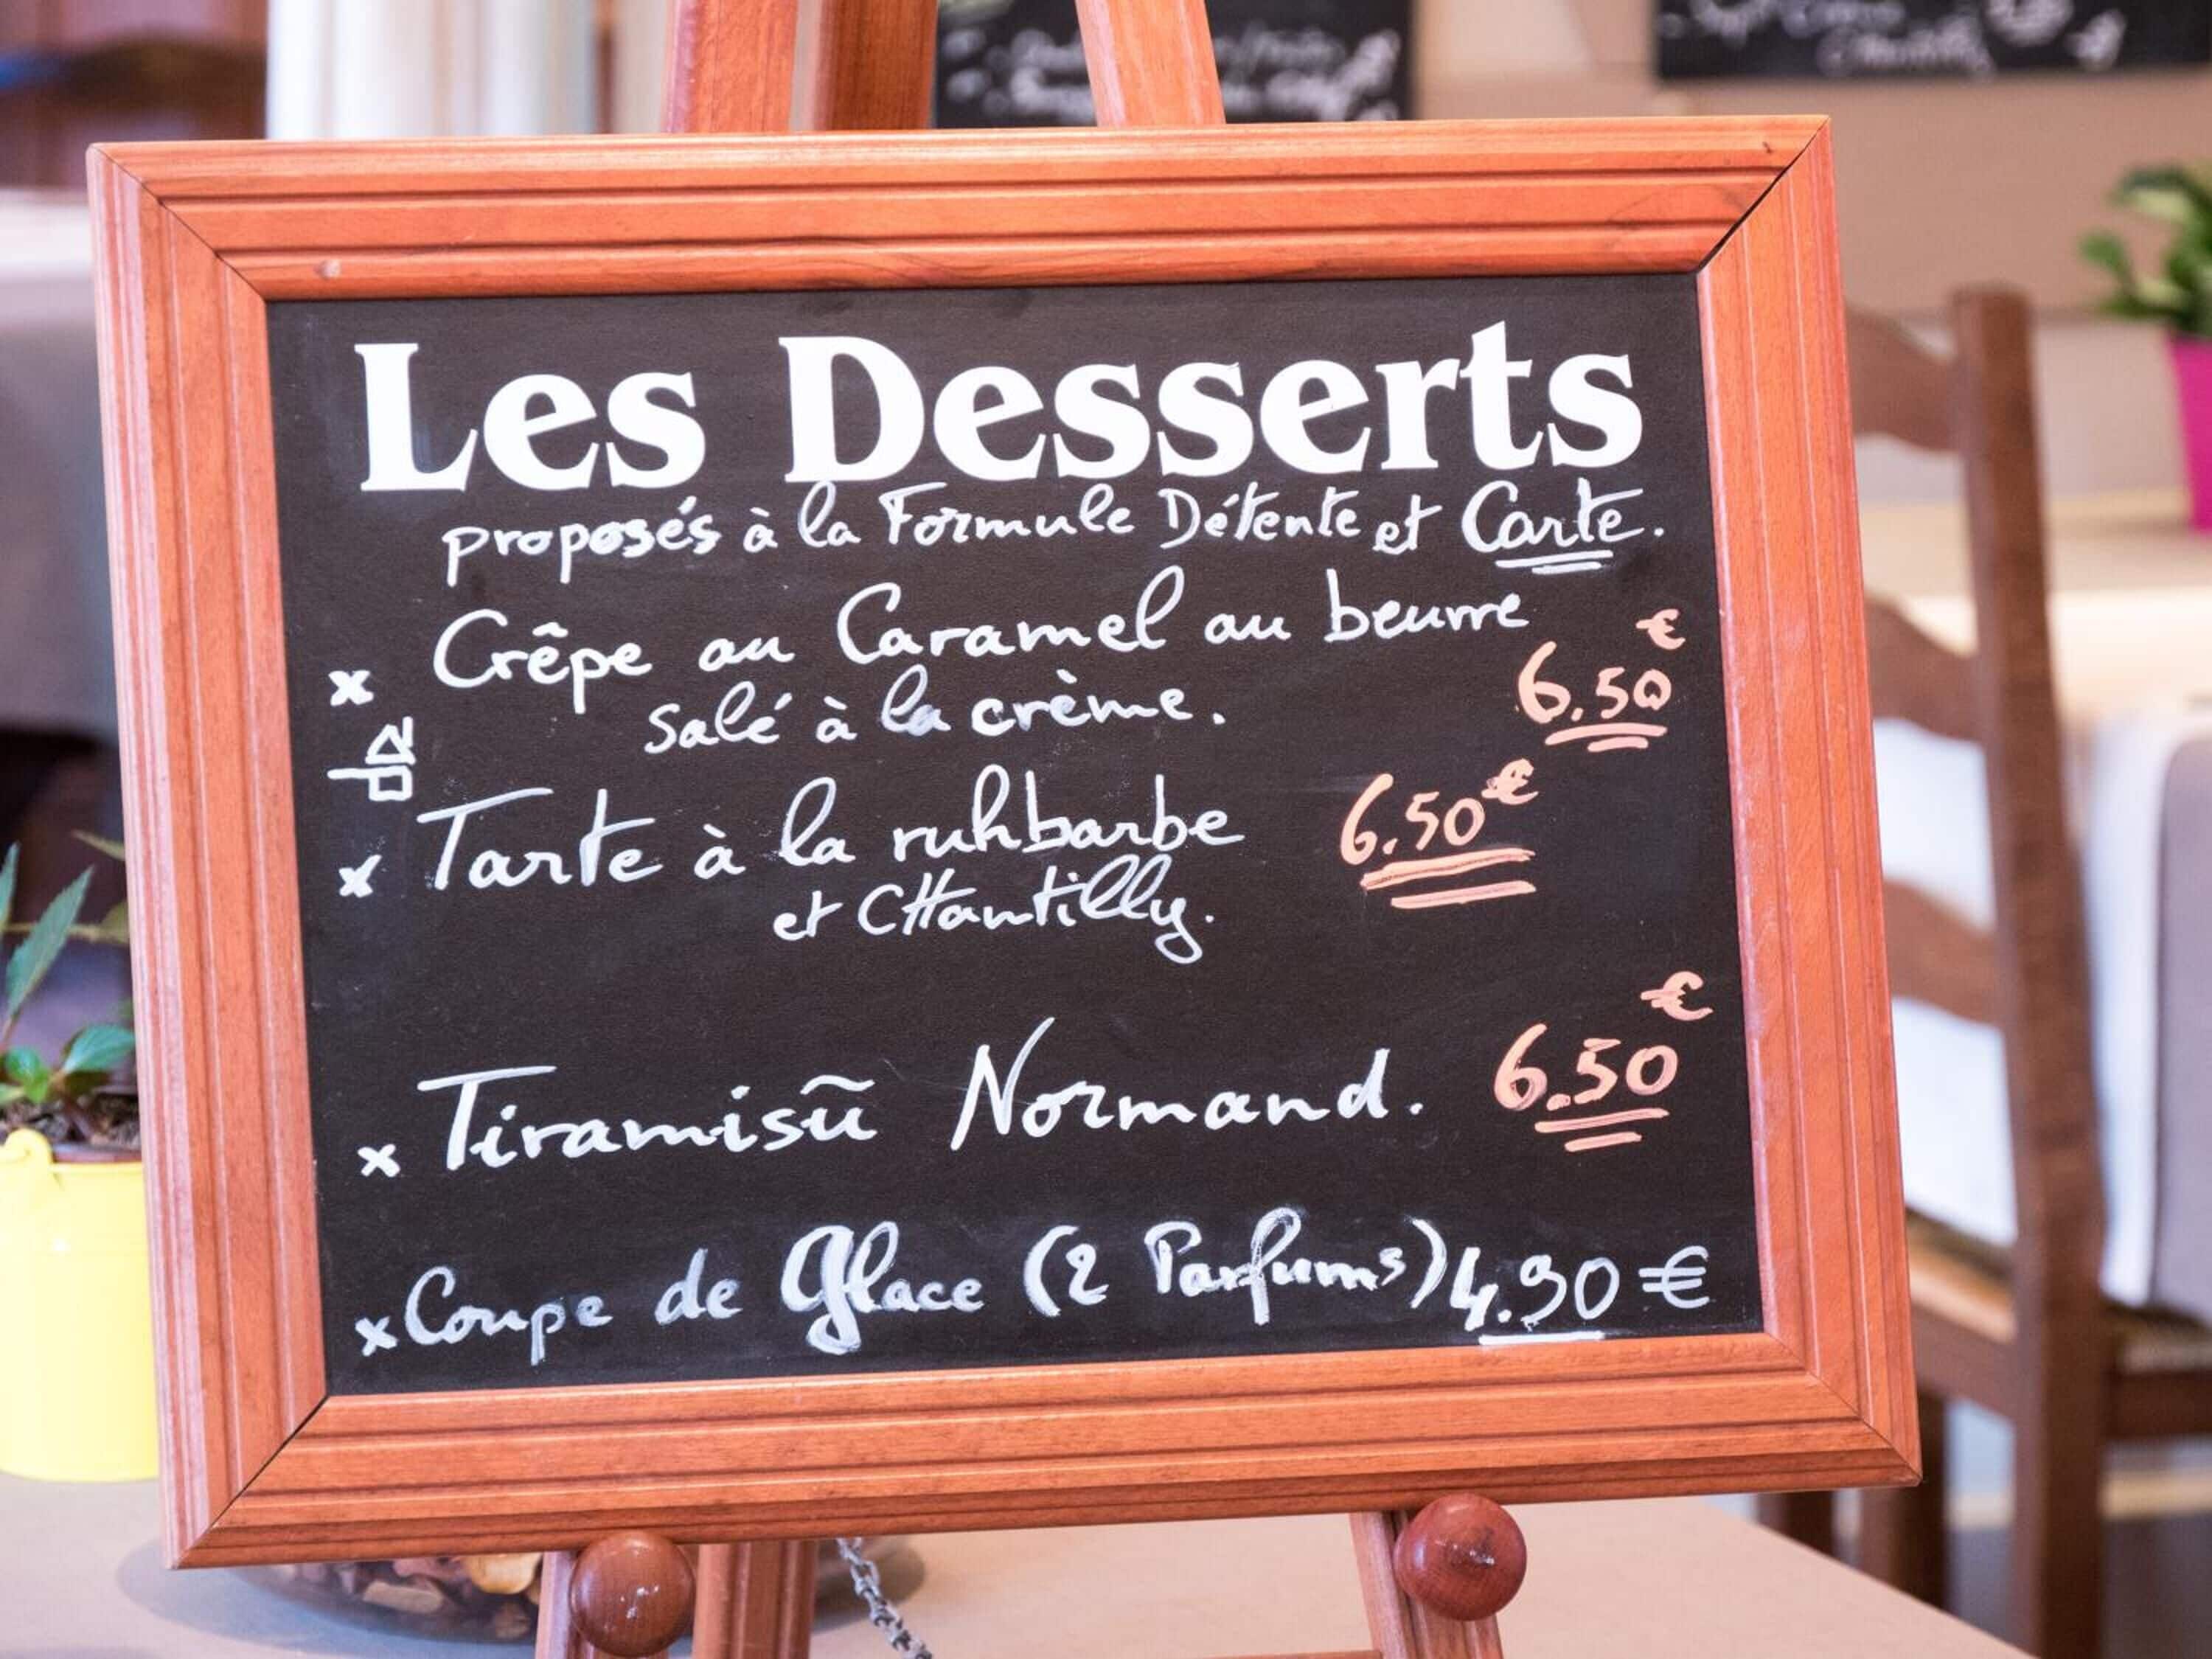 Les Desserts
proposés à la Formule Détente et Carte.
x Crêpe au Caramel au beurre 6.50€
salé à la crème.
x Tarte à la ruhbarbe 6.50€
et CHantilly.
x Tiramisũ Normand. 6.50€
x Coupe de Glace (2 Parfums) 4.90€